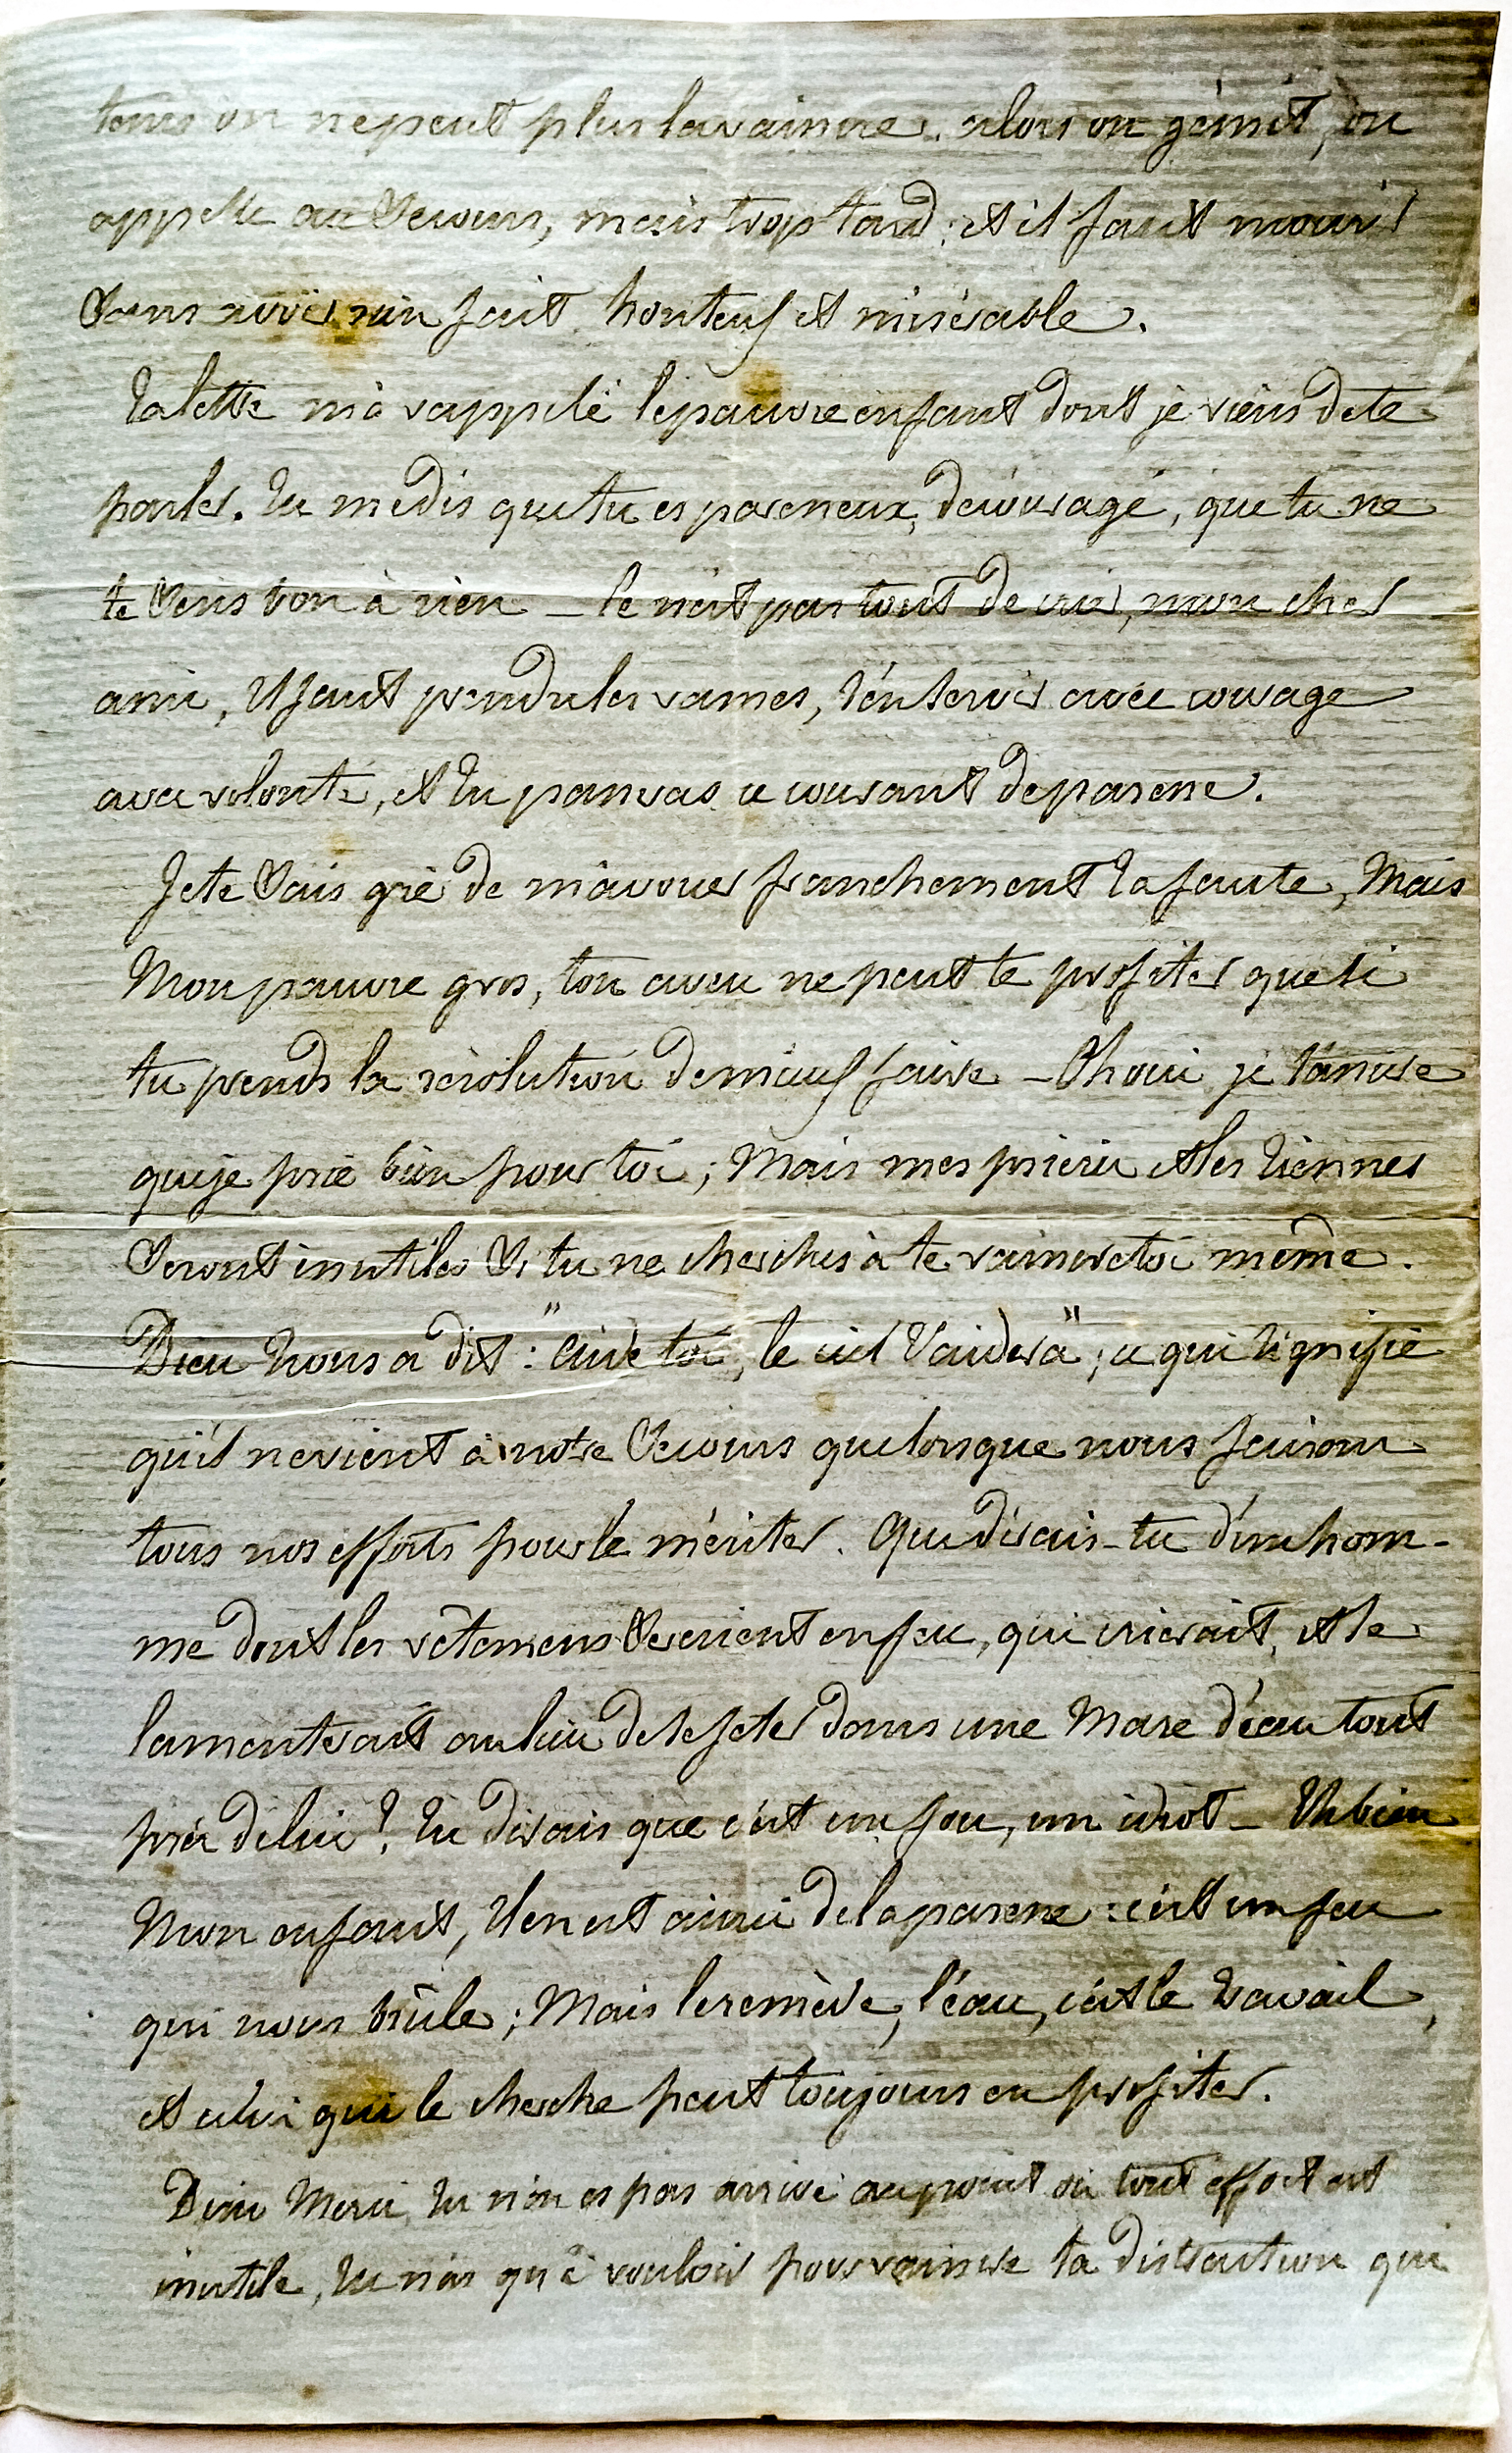 tems on ne peut plus la vaincre. alors on gémit, on
appelle au Secours, mais trop tard; et il faut mourir
Sans avoir rien fait, honteux et misérable.
Ta lettre m'a rappelé le pauvre enfant dont je viens de te
parler. Tu me dis que tu es paresseux, découragé, que tu ne
te Sens bon à rien — Ce n'est pas tout de crier, mon cher
ami, Il faut prendre les rames, t'en servir avec courage
avec volonté, et tu passeras ce courant de paresse.
Je te Sais gré de m'avouer franchement ta faute, Mais
Mon pauvre gros, ton aveu ne peut te profiter que si
tu prends la résolution de mieux faire — Oh oui je t'assure
que je prie bien pour toi; Mais mes prières et les tiennes
Seront inutiles Si tu ne cherches à te vaincre toi même.
Dieu nous a dit: "aide toi, le ciel t'aidera"; ce qui signifie
qu'il ne vient à notre Secours que lorsque nous faisons
tous nos efforts pour le mériter. Que dirais-tu d'un hom-
me dont les vêtemens Seraient en feu, qui crierait, et se
lamenterait au lieu de se jeter dans une Mare d'eau tout
près de lui? Tu dirais que c'est un fou, un idiot — Eh bien
Mon enfant, Il en est ainsi de la paresse: c'est un feu
qui nous brûle; Mais le remède, l'eau, c'est le travail,
et celui qui le cherche peut toujours en profiter.
Dieu Merci, tu n'en es pas arrivé au point où tout effort est
inutile, tu n'as qu'à vouloir pour vaincre ta dissipation qui